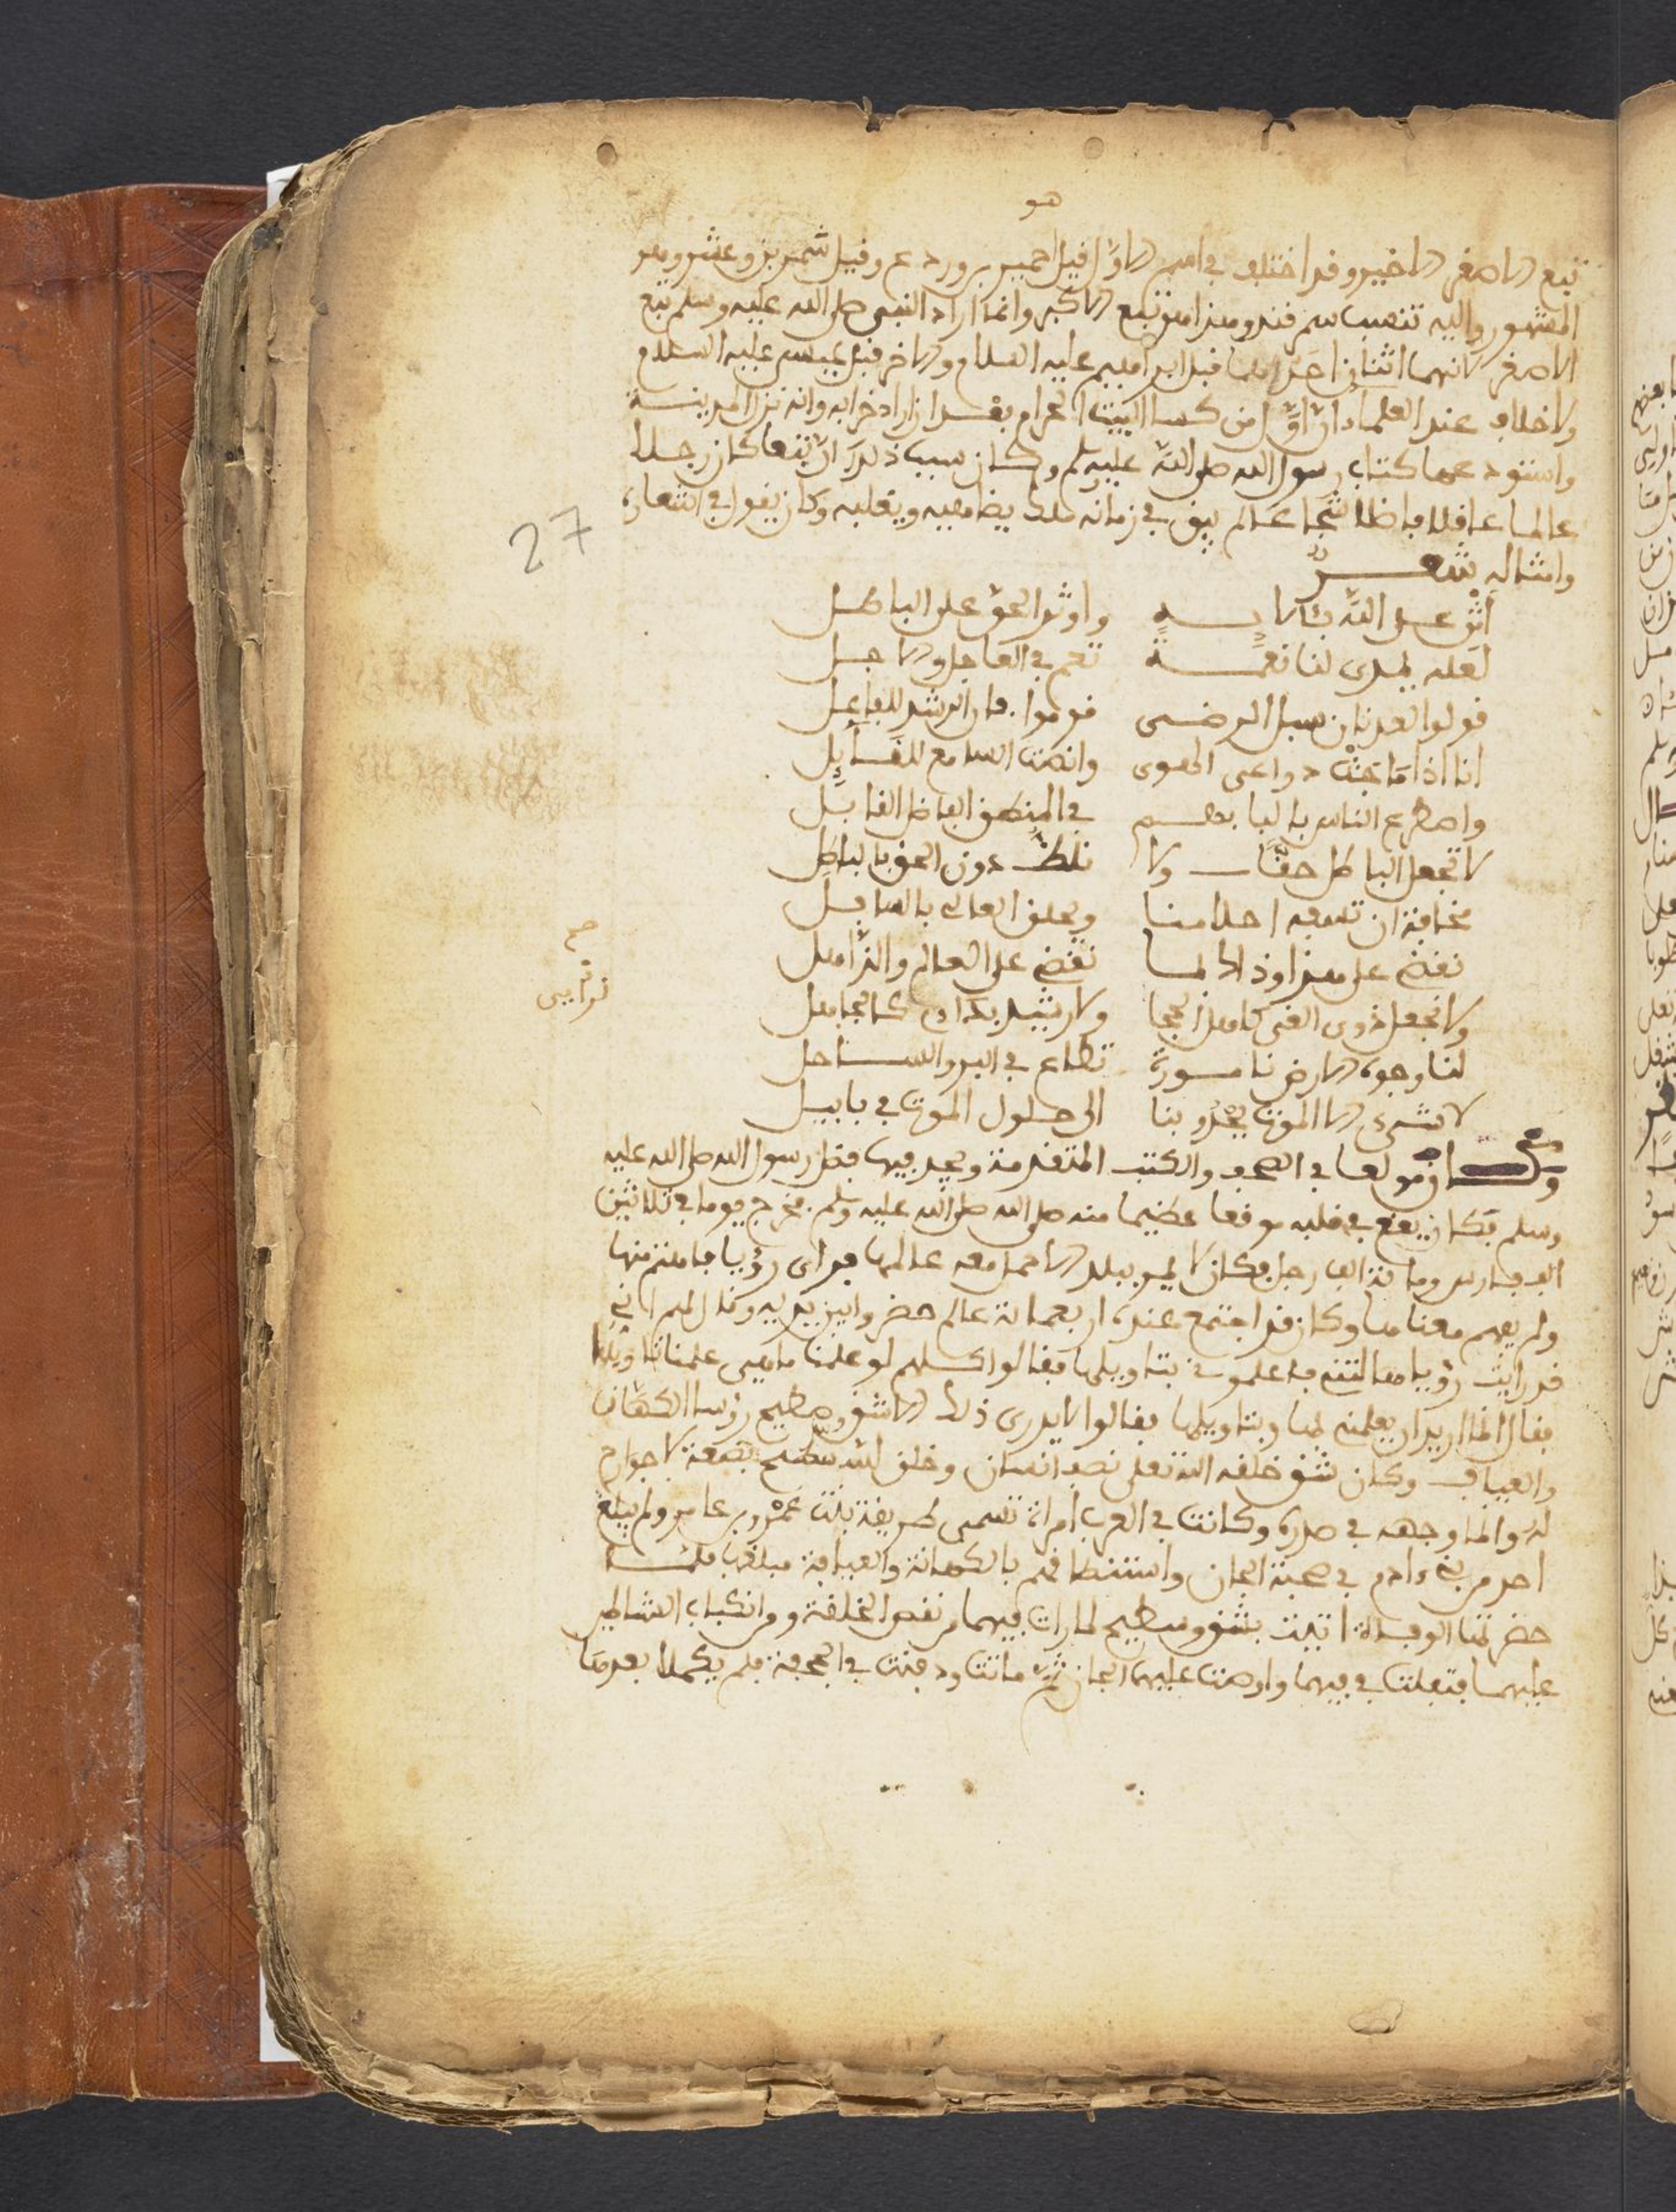 هو
تبع الاصغر الاخير وقد اختلف في اسم الاول فقيل حمير بن وردع وقيل شمر بن عش وهو
المشهور واليه تنسب سمرقند وهذا هو تبع الاكبر وانما اراد النبي صلى الله عليه وسلم تبع
الاصغر لانهما اثنان احدهما قبل ابراهيم عليه السلام والاخر قبل عيسى عليه السلام
ولا خلاف عند العلماء ان اول من كسا البيت الحرام بعد ان اراد خرابه وانه نزل المدينة
واستودعها كتاب رسول الله صلى الله عليه وسلم وكان سبب ذلك ان تبعا كان رجلا
عالما عاقلا فاضلا شجاعا لم يبق في زمانه ملك يضاهيه ويغلبه وكان يقول في اشعاره
وامثاله شعر
اثن على الله بآلايه واوثر الحق على الباطل
لعله يهدى لنا نعمة تعم في العاجل والاجل
قولوا لعدنان سبل الرضى قوموا فان الرشد للفاعل
انا اذا ما جشت دواعى الهوى وانصت السامع للقايل
واصطرع الناس بالبابهم في المنطق الفاضل القابل
لا تجعل الباطل حقا ولا نلظ دون الحق بالباطل
مخافة ان تسفه احلامنا ويلحق العالى بالسافل
نقضى على هذا وذاك لما نقضى على العالم والذاهل
ولا نجعل ذوى الغى كاهل الحجا ولا رشيد بدا كالجاهل
لنا وجوه الارض نا مسورة تطاع في البر والساحل
لا نشرى الا الموت يحدو بنا الى حلول الموت في بابل
صح
قرايى
وكان مولعا في الصحف والكتب المتقدمة ويجد فيها فضل رسول الله صلى الله عليه
وسلم فكان يقع في قلبه موقعا عظيما منه صلى الله عليه وسلم فخرج يوما في ثلاثين
الف فارس وماية الف رجل فكان لا يمر ببلد الا حمل معه عالمها فراى رؤيا فاهتم منها
ولم يفهم معناها وكان قد اجتمع عنده اربعماية عالم حضروا بين يديه وقال لهم اني
قد رايت رؤيا هالتنى فاعلموني بتاويلها فقالوا كلهم لو علمنا ما هى علمنا تاويلها
فقال انما اريد ان يعلمنى بها وبتاويلها فقالوا لا يدرى ذلك الا شق وسطيح رؤسا الكهان
والعياف وكان شق خلقه الله تعلى نصف انسان وخلق الله سطيح بضعة لا جوارح
له وانما وجهه في صدره وكانت في العرب امراة تسمى طريفة بنت عمرو بن عامر ولم يبلغ
احد من بنى ءادم في صحبة الجان واستنطاقهم بالكهانة والعيافة مبلغها فلما
حضرتها الوفاة اتيت بشق وسطيح لما رات فيهما من نقص الخلقة
عليهما فتفلت في فيهما واوصت عليهما الجان ثم ماتت ودفنت في الجحفة فلم يكملا بعدها
27